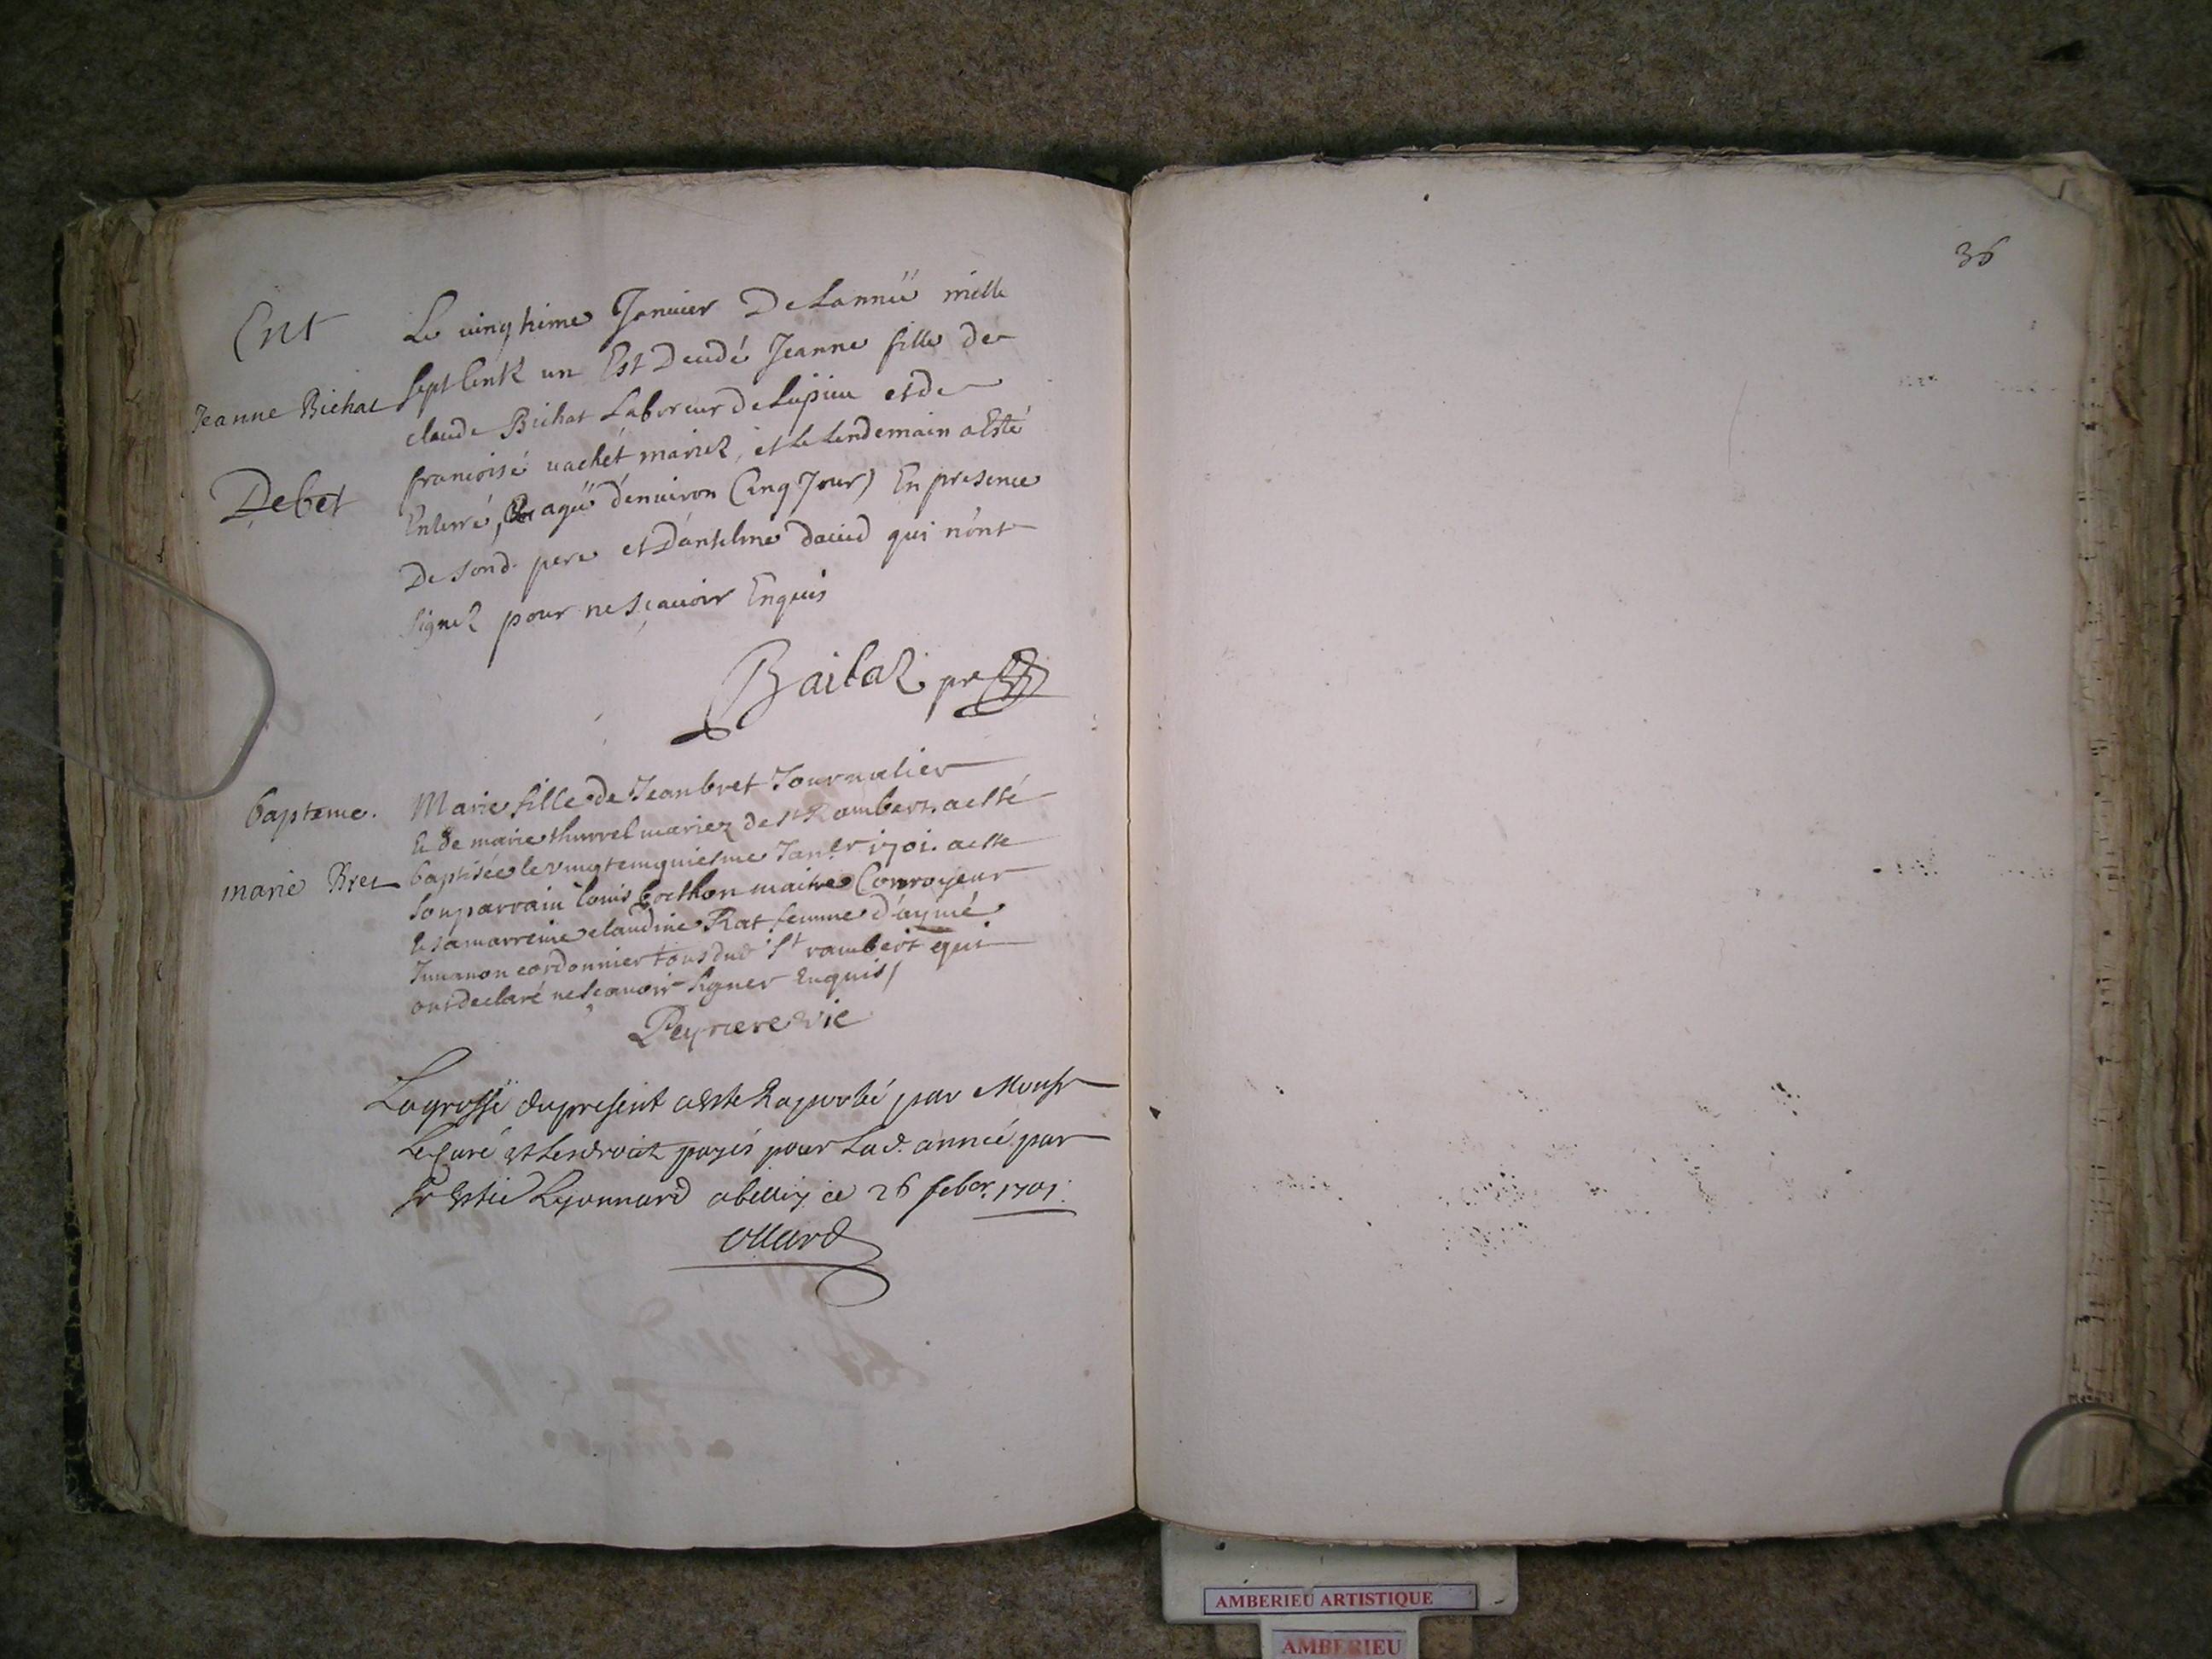 36
Ent
Le vingtieme Janvier De Lannée mille
Jeanne Bichat
sept Cents un Est Decedé Jeanne fille de
claude Bichat Laboreur de Lupieu et de
francoise vachét mariez, et le lendemain a Esté
Debet
Enterré, agée d'enuiron Cinq Jours En presence
De sond. pere et D'antelme dauid qui n'ont
signez pour ne sçauoir Enquis
Bailat pre
bapteme.
Marie fille de Jean bret Journalier
& de marie thurrel mariez de st Rambert, a esté
marie Bret
baptisée le vingt cinquiesme Janer 1701. a esté
son parrain louis bothon maitre Conroyeur
& sa marreine claudine Rat femme d'aymé
Juuanon cordonnier tous dud St rambert qui
ont declaré ne sçauoir signer Enquis
Peyriere vic
La grosse du present a esté Raportée par Monsr
Le Curé et les droits payés pour Lad. année par
Sr Lyonnard a belley ce 26 feber. 1701.